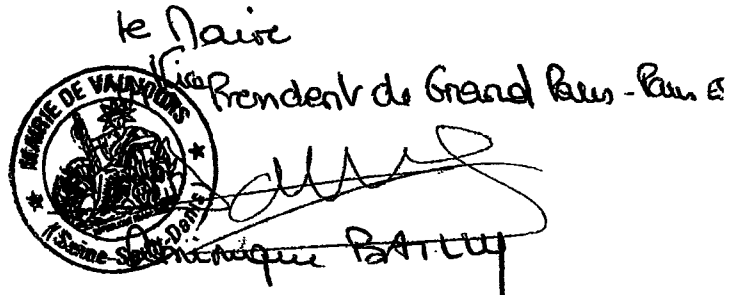 le Maire
Vice President de Grand Paris - Paris E
MAIRIE DE VAUJOURS
(Seine-Saint-Denis)
Dominique BAILLY